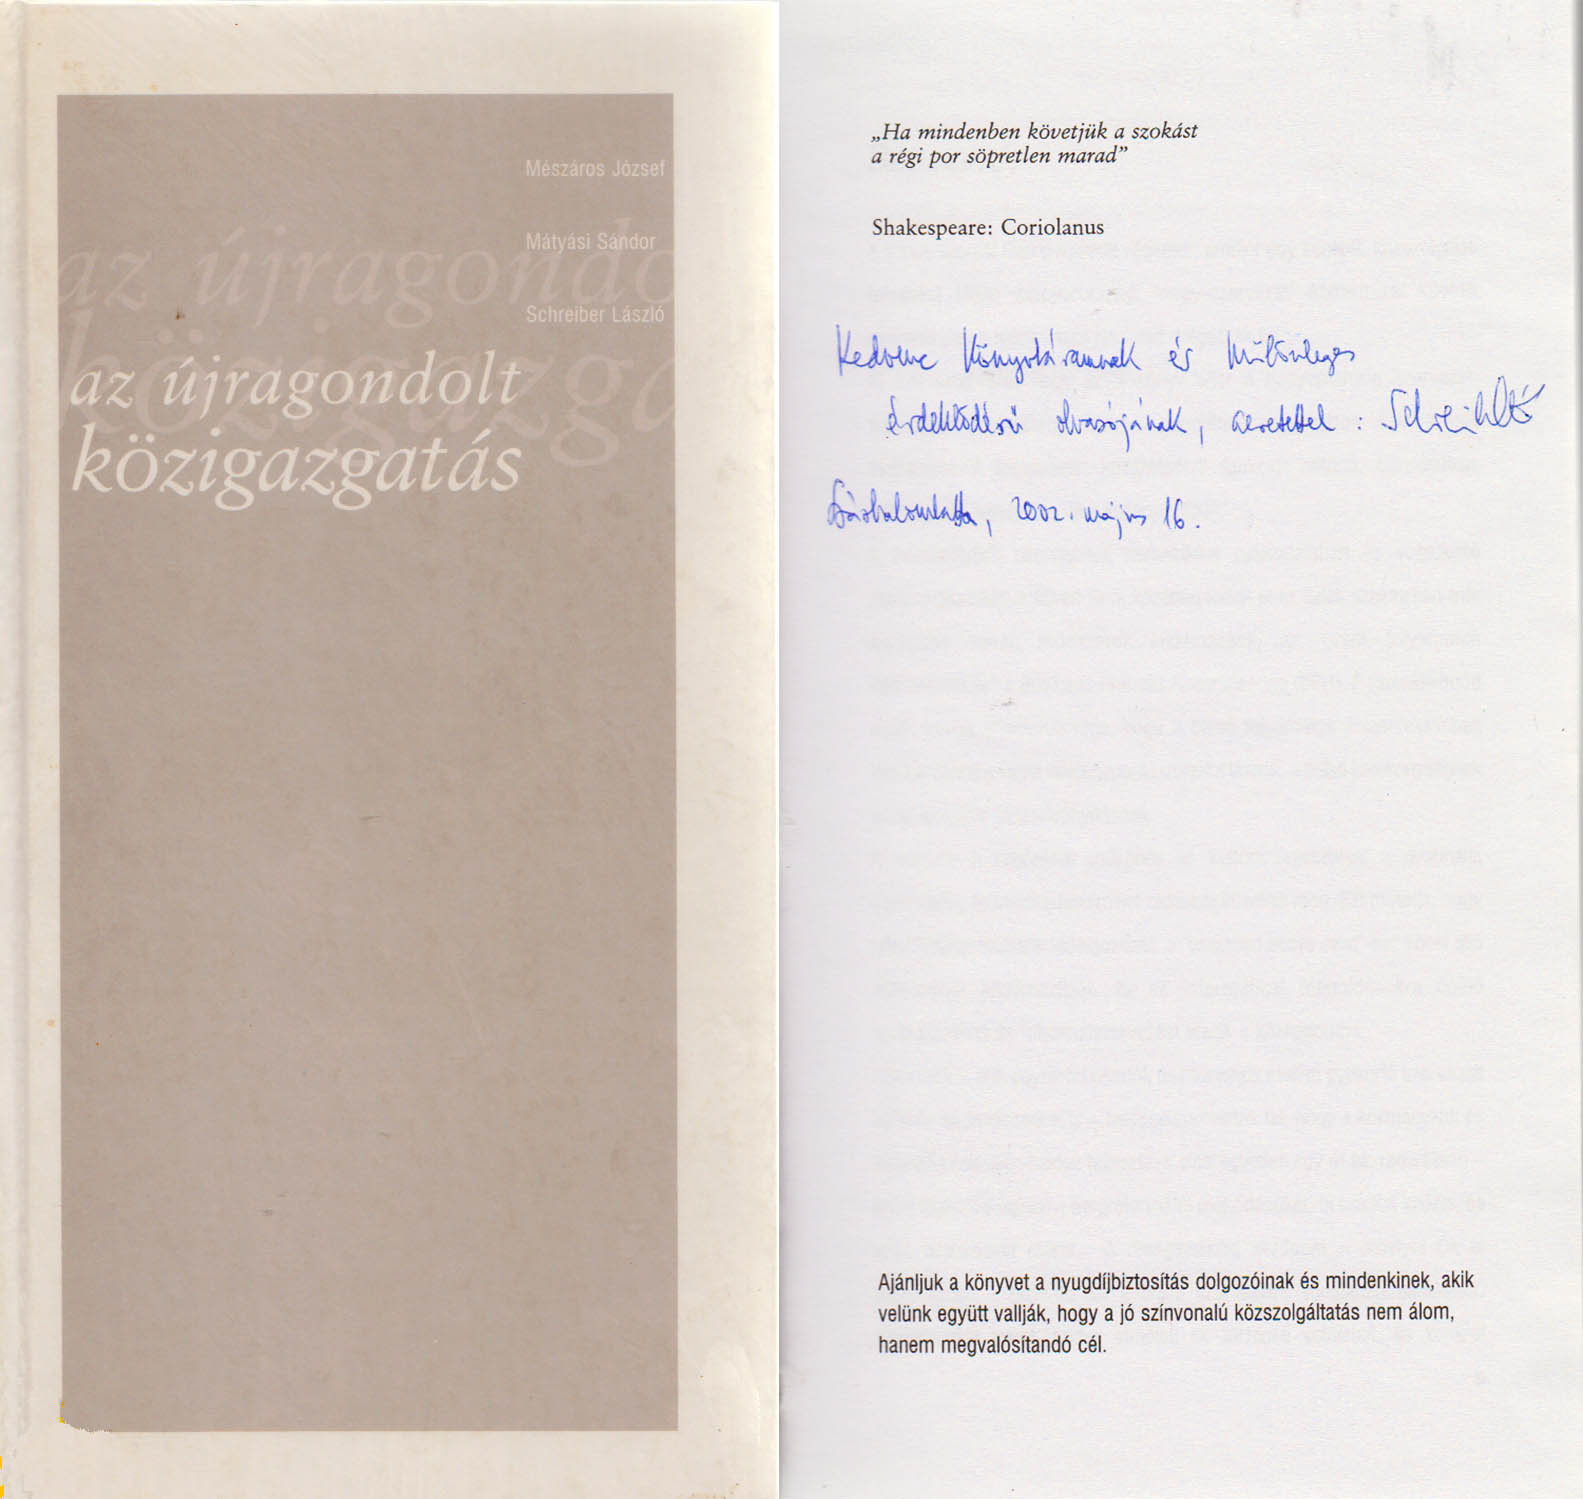 Mészáros József
Mátyási Sándor
Schreiber László
az újragondo
közigazga
az újragondolt
közigazgatás
„Ha mindenben követjük a szokást
a régi por söpretlen marad”
Shakespeare: Coriolanus
Kedvenc Könyvtáramnak és különleges
érdeklődésű olvasójának, szeretettel:
Százhalombatta, 2002. május 16.
Ajánljuk a könyvet a nyugdíjbiztosítás dolgozóinak és mindenkinek, akik
velünk együtt vallják, hogy a jó színvonalú közszolgáltatás nem álom,
hanem megvalósítandó cél.